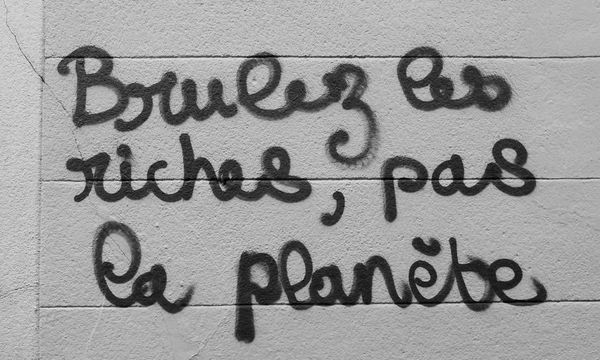 Brulez les
riches, pas
la planète